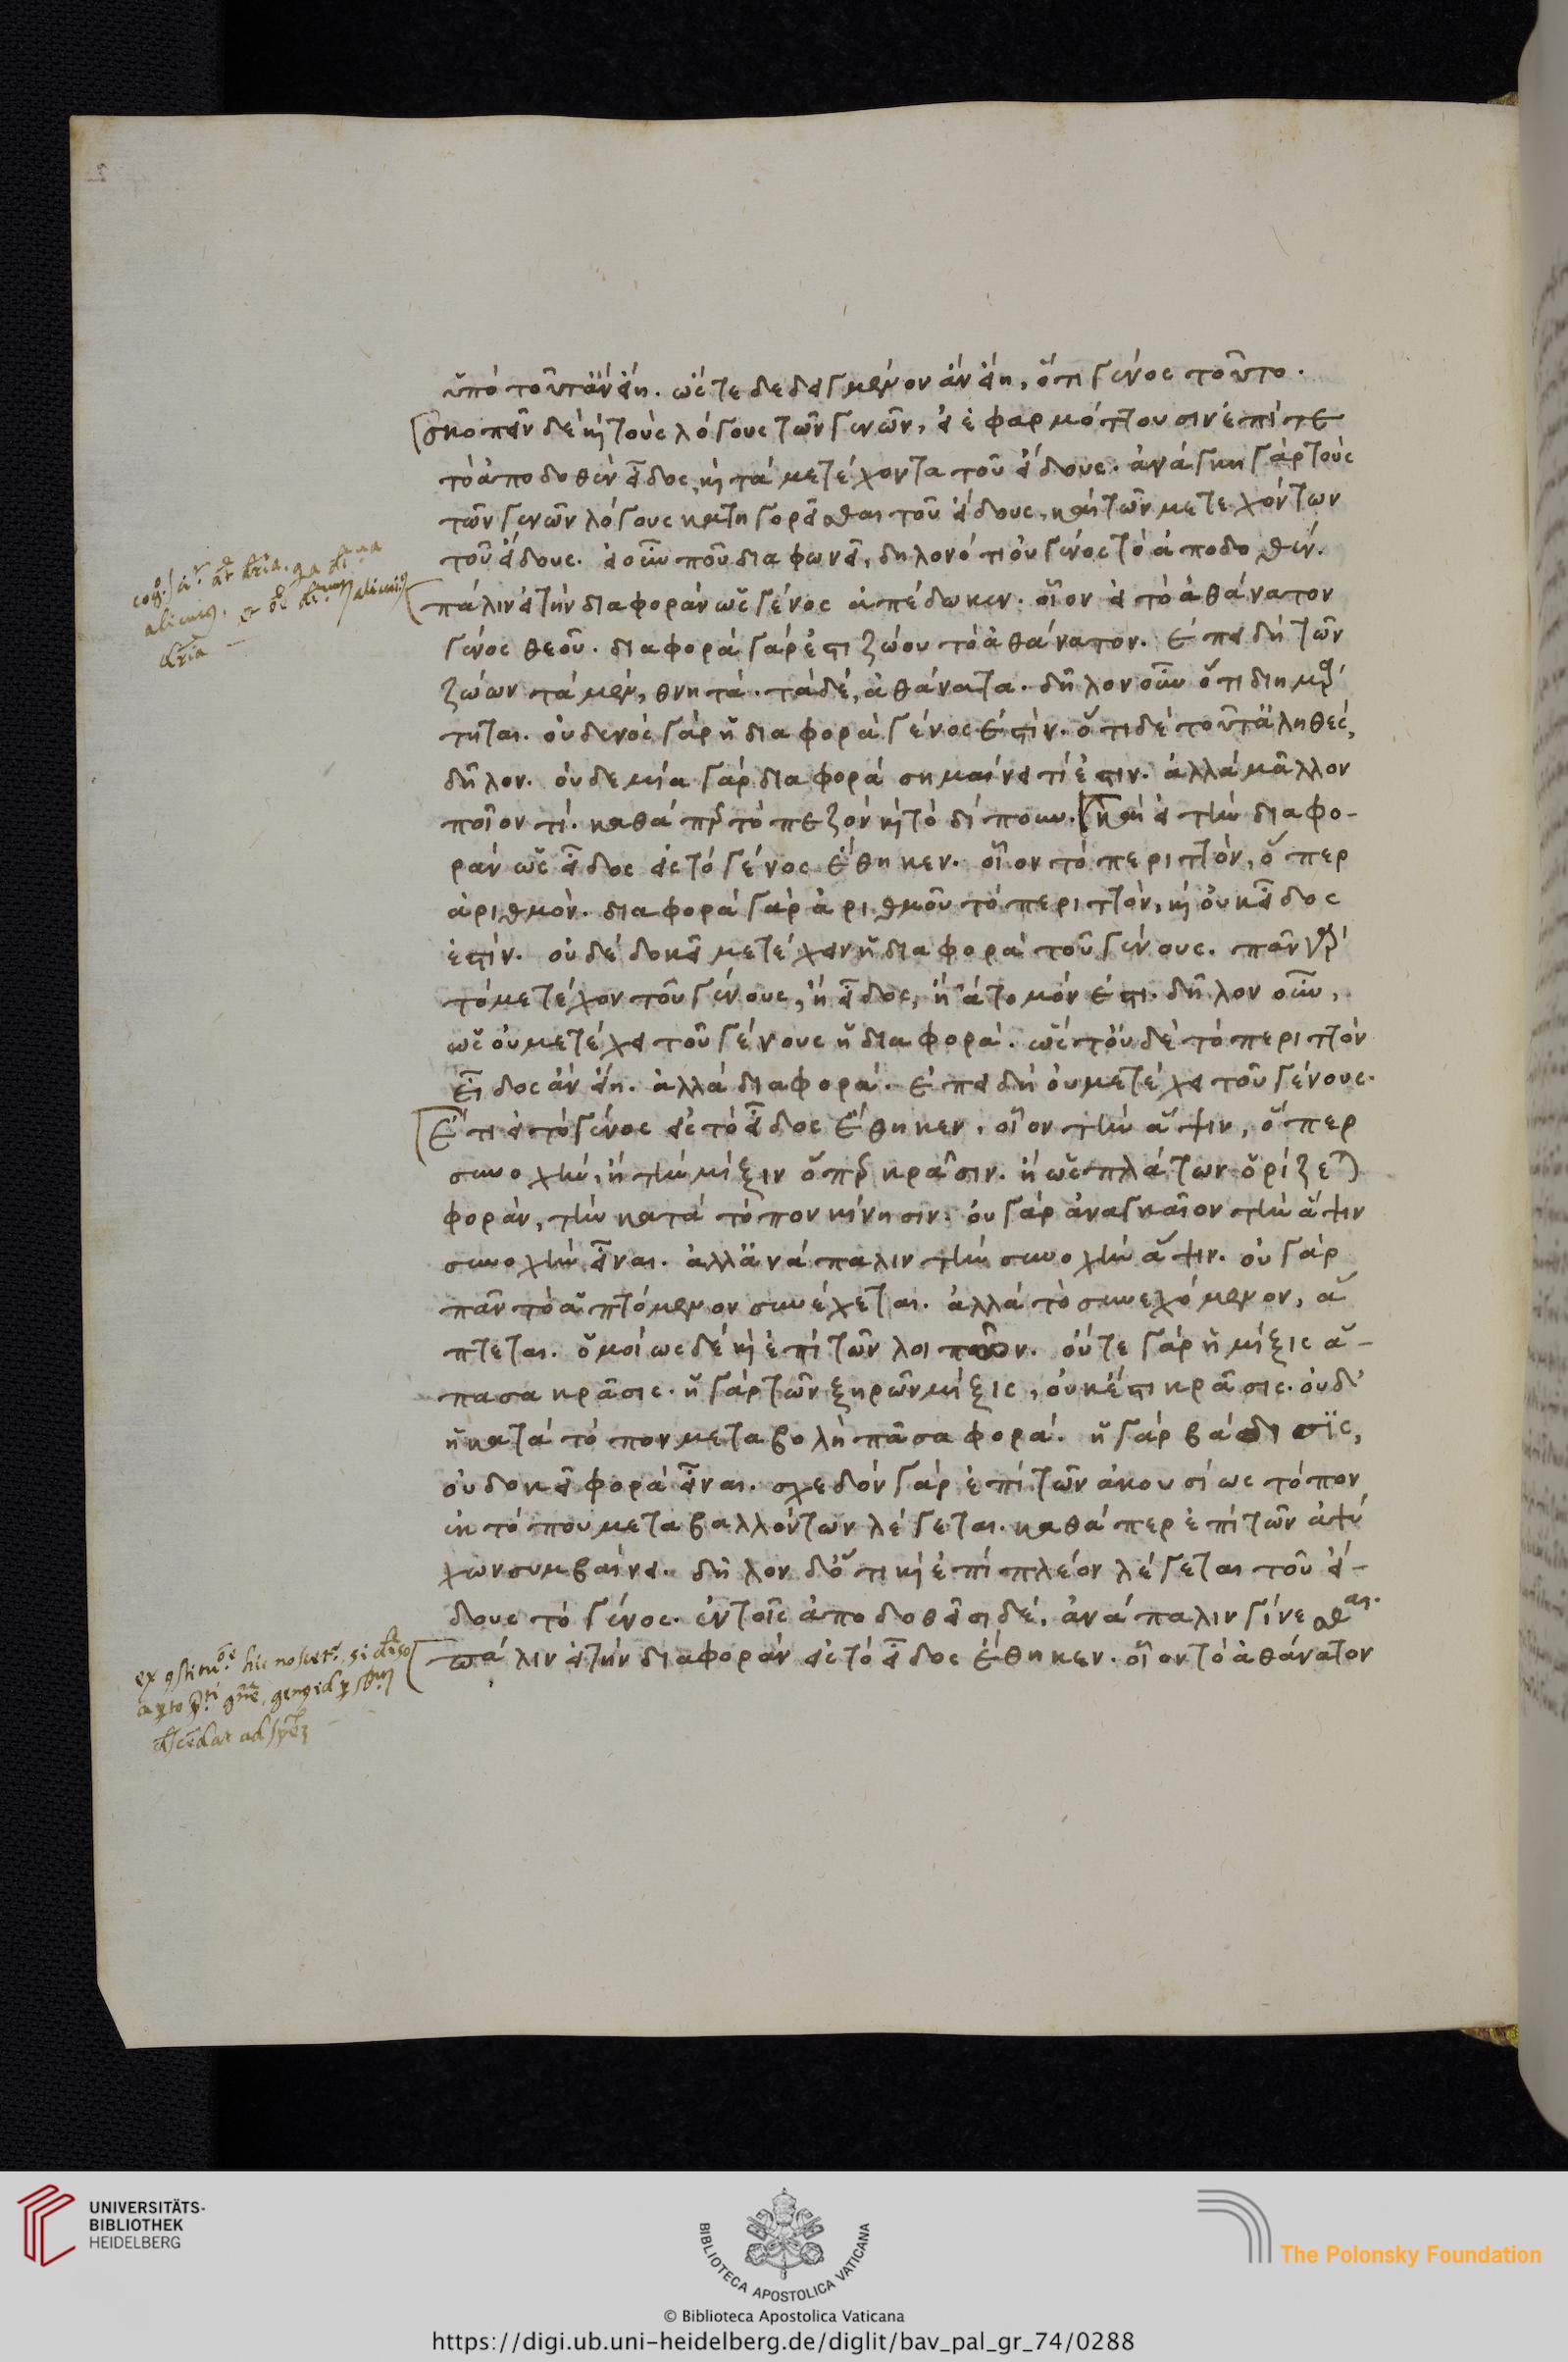 ὑπὸ τοῦτ' ἂν εἴη. ὥστε δεδειγμένον ἂν εἴη, ὅτι γένος τοῦτο.
σκοπεῖν δὲ κ̀ τοὺς λόγους τῶν γενῶν, εἰ ἐφαρμόττουσιν ἐπί τε
τὸ ἀποδοθὲν εἶδος, κ̀ τὰ μετέχοντα τοῦ εἴδους. ἀνάγκη γὰρ τοὺς
τῶν γενῶν λόγους κατηγορεῖσθαι τοῦ εἴδους, καὶ τῶν μετεχόντων
τοῦ εἴδους. εἰ οὖν που διαφωνεῖ, δῆλον ὅτι οὐ γένος τὸ ἀποδοθέν.
πάλιν εἰ τὴν διαφορὰν ὡς γένος ἀπέδωκεν. οἷον εἰ τὸ ἀθάνατον
γένος θεοῦ. διαφορὰ γάρ ἐστι ζώου τὸ ἀθάνατον. ἐπειδὴ τῶν
ζώων τὰ μὲν, θνητά. τὰ δὲ, ἀθάνατα. δῆλον οὖν ὅτι διημάρ
τηται. οὐδενὸς γὰρ ἡ διαφορὰ γένος ἐστίν. ὅτι δὲ τοῦτ' ἀληθές,
δῆλον. οὐδεμία γὰρ διαφορὰ σημαίνει τί ἐστιν. ἀλλὰ μᾶλλον
ποῖον τί. καθάπερ τὸ πεζὸν κ̀ τὸ δίπουν. καὶ εἰ τὴν διαφο-
ρὰν ὡς εἶδος εἰς τὸ γένος ἔθηκεν. οἷον τὸ περιττὸν, ὅπερ
ἀριθμόν. διαφορὰ γὰρ ἀριθμοῦ τὸ περιττόν, κ̀ οὐκ εἶδος
ἐστίν. οὐδὲ δοκεῖ μετέχειν ἡ διαφορὰ τοῦ γένους. πᾶν γὰρ
τὸ μετέχον τοῦ γένους, ἢ εἶδος, ἢ ἄτομόν ἐστι. δῆλον οὖν,
ὡς οὐ μετέχει τοῦ γένους ἡ διαφορά. ὥστ' οὐδὲ τὸ περιττὸν
εἶδος ἂν εἴη. ἀλλὰ διαφορά. ἐπειδὴ οὐ μετέχει τοῦ γένους.
Ἔτι εἰ τὸ γένος εἰς τὸ εἶδος ἔθηκεν. οἷον τὴν ἅψιν, ὅπερ
συνοχήν, ἢ τὴν μίξιν ὅπερ κρᾶσιν. ἢ ὡς πλάτων ὁρίζεται
φορὰν, τὴν κατὰ τόπον κίνησιν. οὐ γὰρ ἀναγκαῖον τὴν ἅψιν
συνοχὴν εἶναι. ἀλλ' ἀνάπαλιν τὴν συνοχὴν ἅψιν. οὐ γὰρ
πᾶν τὸ ἁπτόμενον συνέχεται. ἀλλὰ τὸ συνεχόμενον, ἅ
πτεται. ὁμοίως δὲ κ̀ ἐπὶ τῶν λοιπῶν. οὔτε γὰρ ἡ μίξις ἅ-
πασα κρᾶσις. ἡ γὰρ τῶν ξηρῶν μίξις, οὐκ ἔστι κρᾶσις. οὐδ'
ἡ κατὰ τόπον μεταβολὴ πᾶσα φορά. ἡ γὰρ βάδισις,
οὐ δοκεῖ φορὰ εἶναι. σχεδὸν γὰρ ἐπὶ τῶν ἀκουσίως τόπον
ἐκ τόπου μεταβαλλόντων λέγεται. καθάπερ ἐπὶ τῶν ἀψύ
χων συμβαίνει. δῆλον δ' ὅτι κ̀ ἐπὶ πλέον λέγεται τοῦ εἴ-
δους τὸ γένος. ἐν τοῖς ἀποδοθεῖσι δέ, ἀνάπαλιν γίνεσθαι.
πάλιν εἰ τὴν διαφορὰν εἰς τὸ εἶδος ἔθηκεν. οἷον τὸ ἀθάνατον
UNIVERSITÄTS-
BIBLIOTHEK
HEIDELBERG
BIBLIOTECA APOSTOLICA VATICANA
The Polonsky Foundation
© Biblioteca Apostolica Vaticana
https://digi.ub.uni-heidelberg.de/diglit/bav_pal_gr_74/0288